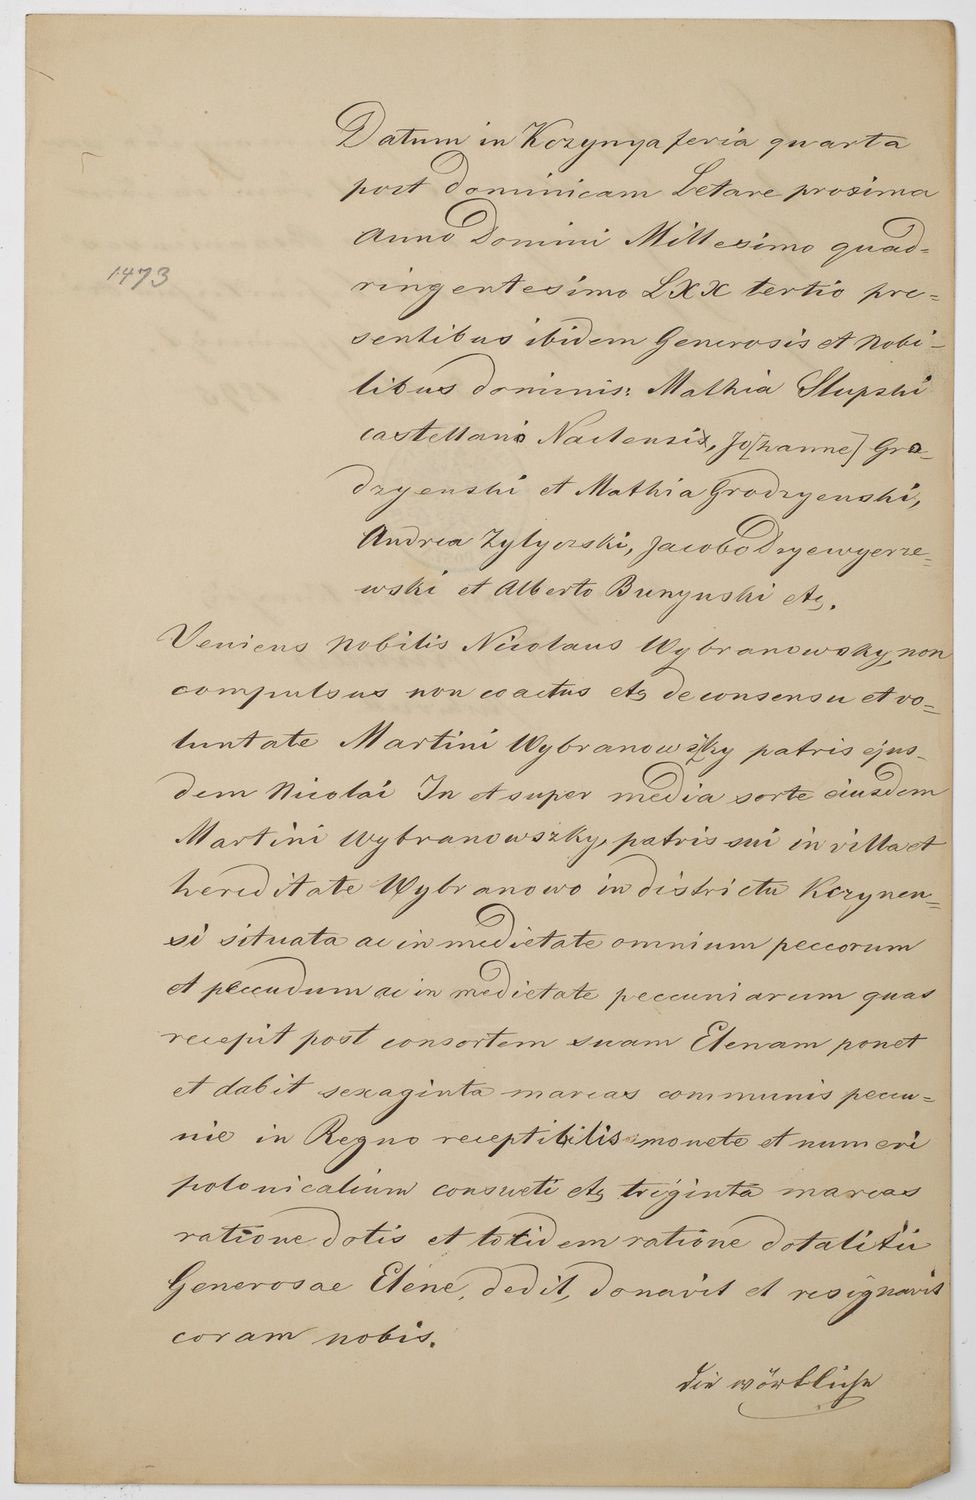 Datum in Kczynya feria quarta
post dominicam Letare proxima
Anno Domini Millesimo quad=
1473
ringentesimo LXX tertio pre=
sentibus ibidem Generosis et Nobi-
libus dominis: Mathia Slupski
castellano Naclensi, Jo[hanne] Gro-
dzyenski et Mathia Grodzyenski,
Andrea Zylyczski, Jacobo Dzyewyerze=
wski et Alberto Bunynski etc.
Veniens Nobilis Nicolaus Wybranowsky, non
compulsus non coactus etc de consensu et vo=
luntate Martini Wybranowszky patris ejus-
dem Nicolai In et super media sorte eiusdem
Martini Wybranowszky, patris sui in villa et
hereditate Wybranowo in districtu Kczynen=
si situata ac in medietate omnium peccorum
et peccudum ac in medietate peccuniarum quas
recepit post consortem suam Elenam ponet
et dabit sexaginta marcas communis peccu=
nie in Regno receptibilis monete et numeri
polonicalium consueti etc triginta marcas
ratione dotis et totidem ratione dotalitii
Generosae Elene, dedit, donavit et resignavit
coram nobis.
die wörtliche